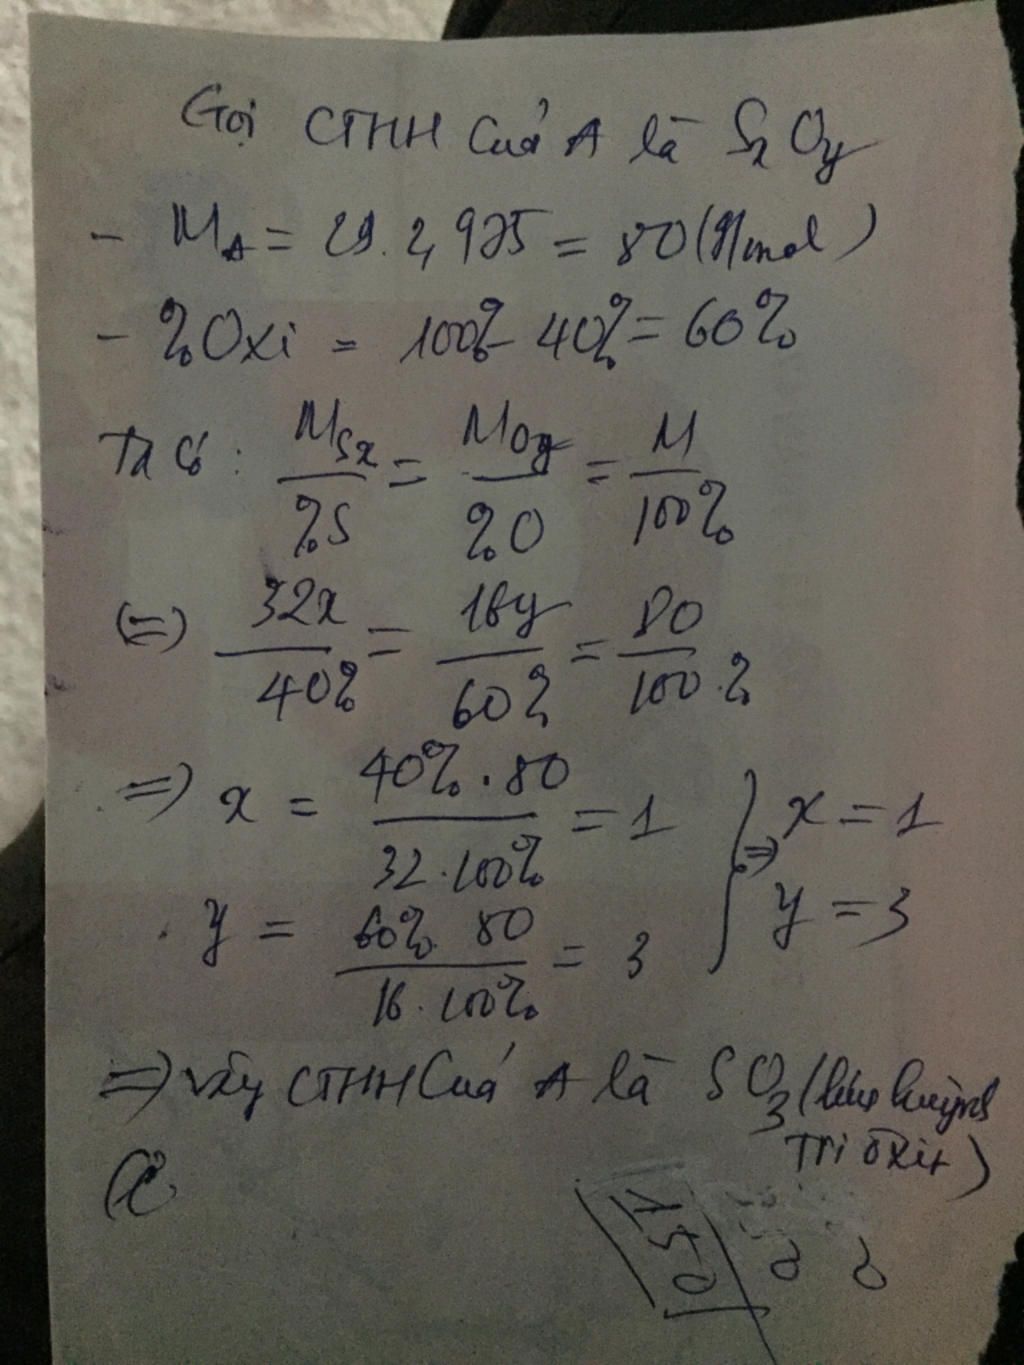 Gọi CTHH Của A là SxOy
- MA = 29.2,975 = 80 (g/mol)
- %Oxi = 100% - 40% = 60%
Ta có: MSx/%S = MOy/%O = M/100%
(=) 32x/40% = 16y/60% = 80/100%
=) x = 40%.80/32.100% = 1 } =) x = 1
y = 60%.80/16.100% = 3 y = 3
=) vậy CTHH Của A là SO3 (lưu huỳnh
Tri ôxit)
150